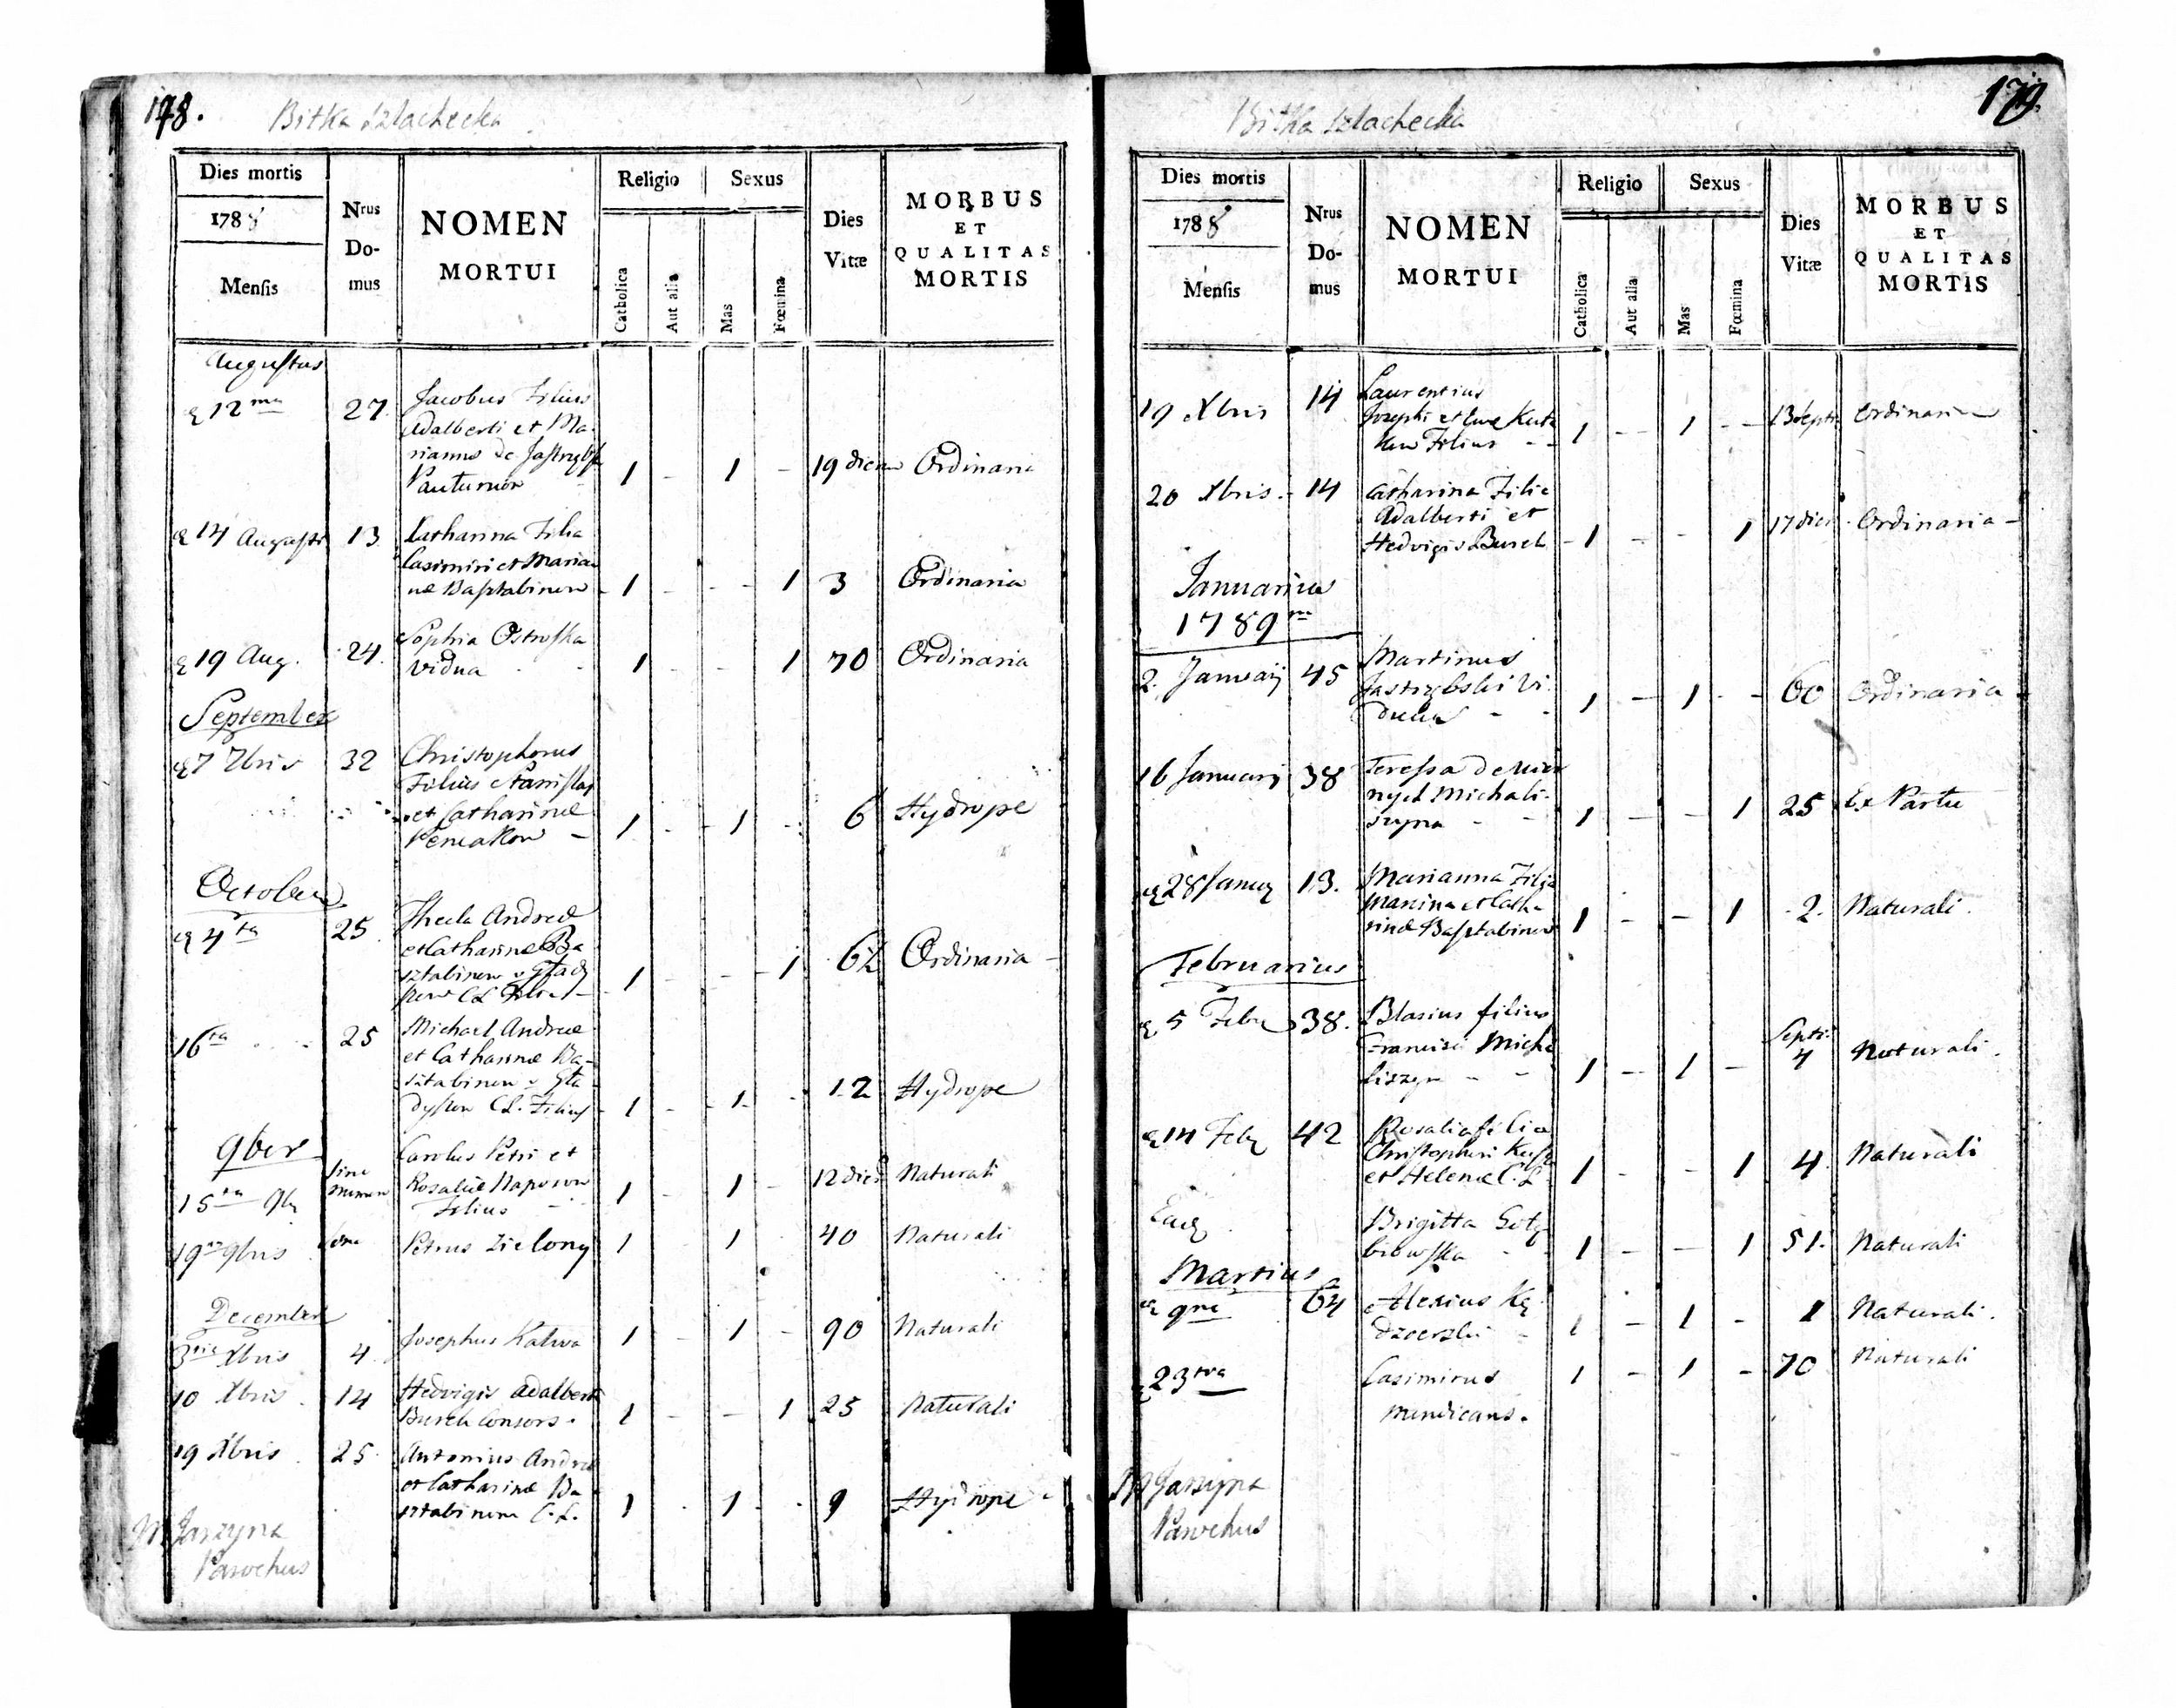 178.
Bitka Szlachecka
Dies mortis
1788
Mensis
Nrus
Do-
mus
NOMEN
MORTUI
Religio
Catholica
Aut alia
Sexus
Mas
Fœmina
Dies
Vitæ
MORBUS
ET
QUALITAS
MORTIS
Augustus
12ma 27 Jacobus Filius
Adalberti et Ma-
rianna de
1 - 1 - 19 dierum Ordinaria
14 Augusti 13 Catharina Filia
Casimiri et Marian
næ Basztabinow - 1 - - - 1 3 Ordinaria
19 Aug. 24. Sophia Ostroska
Vidua 1 - - 1 70 Ordinaria
September
7 7bris 32 Christophorus
Filius Stanislai
et Catharinæ
1 - - 1 - 6 Hydrope
October
4ta 25 Thecla Andreæ
et Catharinæ Ba
sztabinow v
C.L. Filia - 1 - - 1 Ordinaria
16ta 25 Michael Andreæ
et Catharinæ Ba-
sztabinow v Gła
C.L. Filius 1 - - 1 - 12 Hydrope
9ber
15ta 9b Sine numero Carolus Petri et
Rosaliæ
Filius 1 - 1 - 12 dies Naturali
19 9bris Petrus Zielony 1 1 40 Naturali
December
3tia Xbris 4 Josephus Kalwa 1 - 1 - 90 Naturali
10 Xbris 14 Hedvigis Adalberti
Consors. 1 - - 1 25 Naturali
19 Xbris 25 Antonius Andreæ
et Catharinæ Ba
sztabinow C.L. 1 - 1 - 9 Hydrope
M Jarzyna
Parochus
179.
Bitka Szlachecka
Dies mortis
1788
Mensis
Nrus
Do-
mus
NOMEN
MORTUI
Religio
Catholica
Aut alia
Sexus
Mas
Fœmina
Dies
Vitæ
MORBUS
ET
QUALITAS
MORTIS
19 Xbris 14 Laurentius
Josephi et Evæ
Filius - - 1 - - 1 - - Ordinaria
20 Xbris. 14 Catharina Filia
Adalberti et
Hedvigis - 1 - - 1 17 dier Ordinaria -
Januarius
1789
2. Januarij 45 Martinus
Jastrzębski Vi-
duus - - 1 - 1 - - 60 Ordinaria
16 Januarij 38 Teressa de
Michali-
szyna - - 1 - - 1 25 Ex Partu
28 Januarij 13. Marianna Filia
et Catha-
rinæ Basztabinow 1 - - 1 2. Naturali.
Februarius
5 Febr 38. Blasius filius
Francisci Micha
liszyn - - 1 - 1 - Septi: 4 Naturali.
14 Feb 42 Rosalia filia
Christophori
et Helenæ C.L. 1 - - 1 4 Naturali
Ead
Brigitta Gołę
biowska - - 1 - - 1 51. Naturali
Martius
9na 64 Alexius Kę
dzierski - 1 - 1 - 1 Naturali.
23tia Casimirus
Mendicans. 1 - 1 - 70 Naturali
M Jarzyna
Parochus